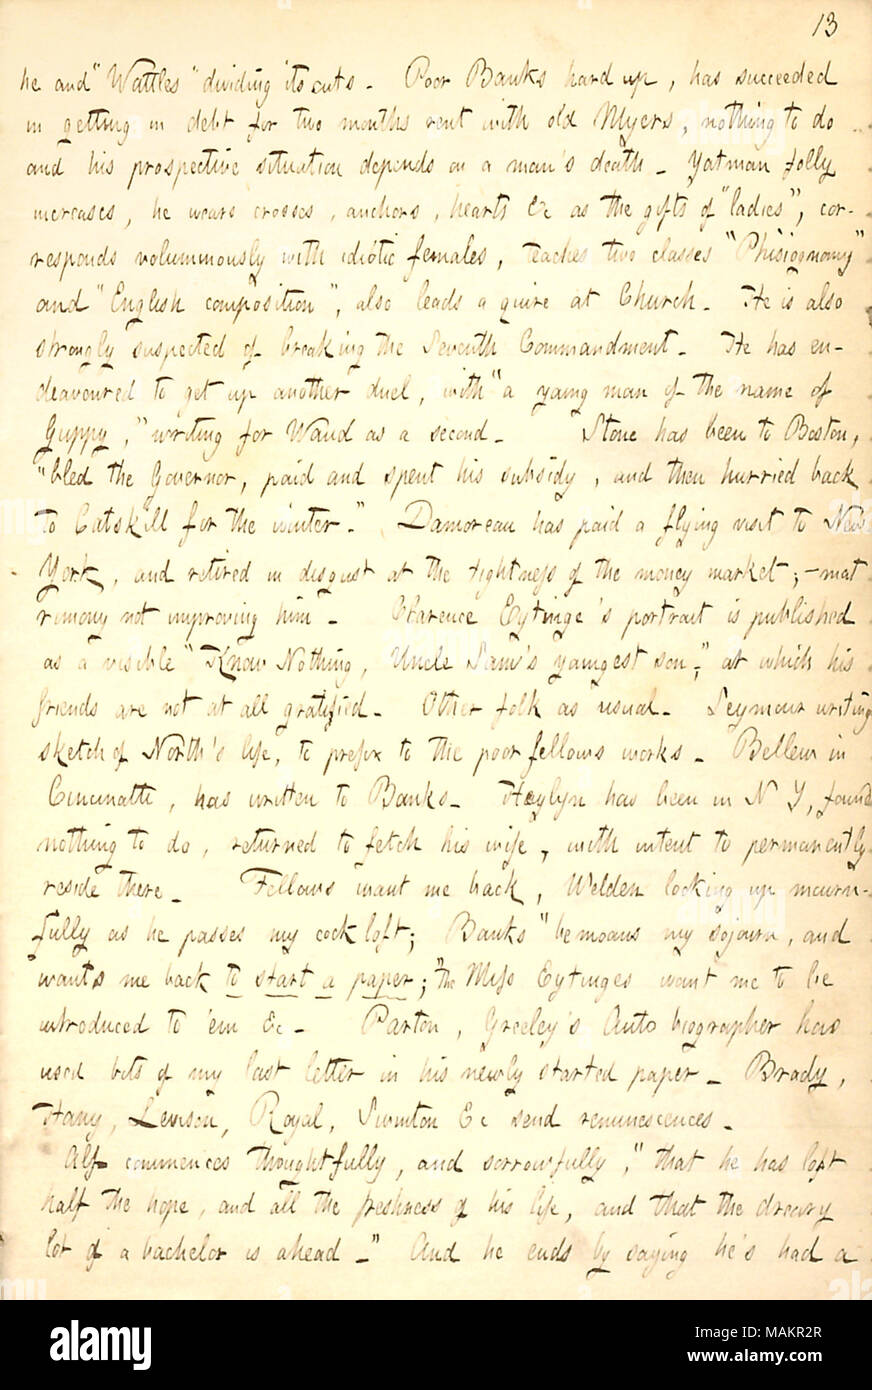 13
he and "Wattles" dividing its cuts. Poor Banks hard up, has succeeded
in getting in debt for two months rent with old Myers, nothing to do
and his prospective situation depends on a man's death. Yatman folly
increases, he wears crosses, anchors, hearts &c as the gifts of "ladies", cor-
responds voluminously with idiotic females, teaches two classes "Phisiognomy"
and "English composition", also leads a quire at Church. He is also
strongly suspected of breaking the Seventh Commandment. He has en-
deavoured to get up another duel, with "a young man of the name of
Guppy," writing for Waud as a second. Stone has been to Boston,
"bled the Governor, paid and spent his subsidy, and then hurried back
to Catskill for the winter." Damoreau has paid a flying visit to New
York, and retired in disgust at the tightness of the money market; - mat
rimony not improving him. Clarence Eytinge's portrait is published
as a visible "Know Nothing, Uncle Sam's youngest son;" at which his
friends are not at all gratified. Other folk as usual. Seymour writing
sketch of North's life, to prefix to the poor fellows works. Bellew in
Cincinatti, has written to Banks. Heylyn has been in N Y, found
nothing to do, returned to fetch his wife, with intent to permanently
reside there. Fellows want me back, Welden looking up mourn-
fully as he passes my cock loft; Banks "bemoans my sojourn, and
wants me back to start a paper;" the Miss Eytinges want me to be
introduced to 'em &c. Parton, Greeley's Auto biographer has
used bits of my last letter in his newly started paper. Brady,
Haney, Levison, Royal, Swinton &c send reminescences.
Alf commences thoughtfully, and sorrowfully, "that he has lost
half the hope, and all the freshness of his life, and that the dreary
lot of a bachelor is ahead." And he ends by saying he's had a
alamy
Image ID: MAKR2R
www.alamy.com